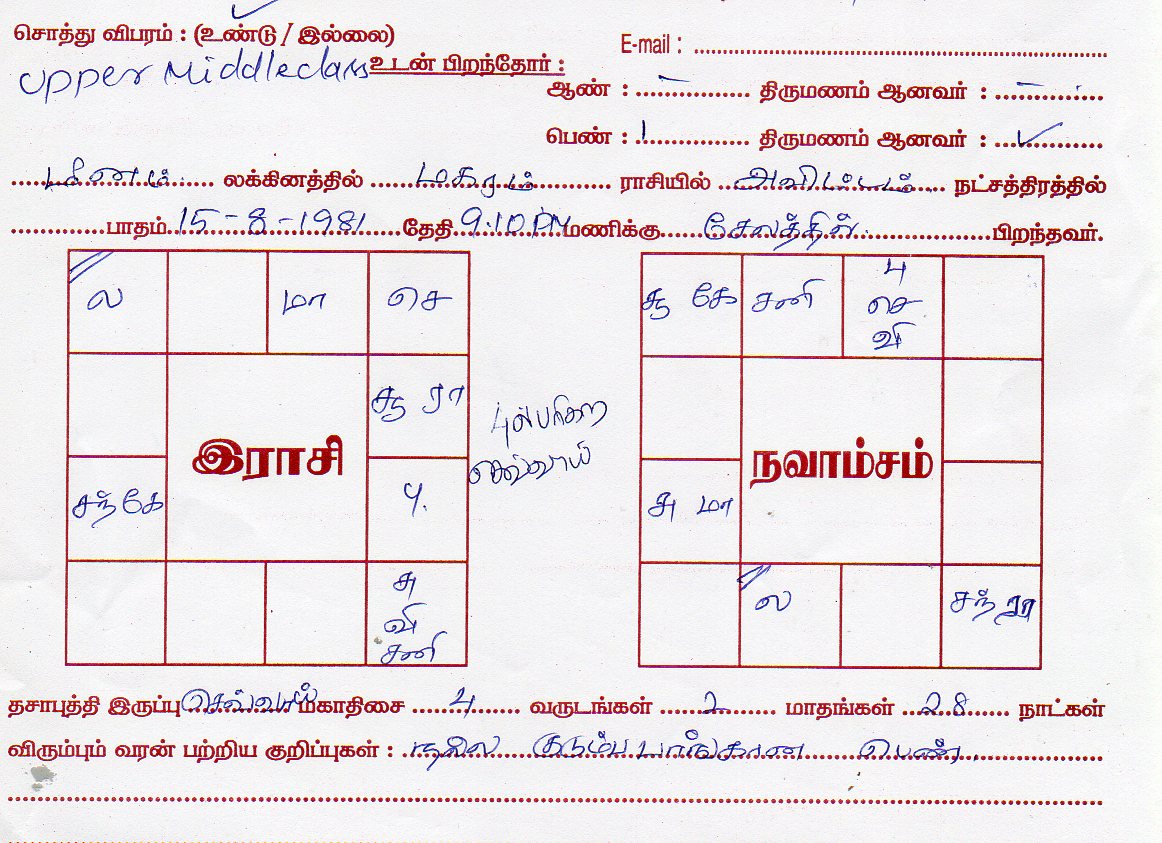 சொத்து விபரம் : (உண்டு / இல்லை)
E-mail :
Upper Middleclass உடன் பிறந்தோர் :
ஆண் : – திருமணம் ஆனவர் : –
பெண் : 1 திருமணம் ஆனவர் : ✓
மீனம் லக்கினத்தில் மகரம் ராசியில் அவிட்டம் நட்சத்திரத்தில்
பாதம் 15-8-1981 தேதி 9.10 PM மணிக்கு சேலத்தில் பிறந்தவர்.
ல மா செ
சூ ரா
சந் கே
பு
சு
வி
சனி
இராசி
செவ்வாய்
சூ கே சனி
பு
செ
வி
சு மா
ல
சந் ரா
நவாம்சம்
தசாபுத்தி இருப்பு செவ்வாய் மகாதிசை 4 வருடங்கள் 2 மாதங்கள் 28 நாட்கள்
விரும்பும் வரன் பற்றிய குறிப்புகள் : நல்ல குடும்ப பாங்கான பெண்.